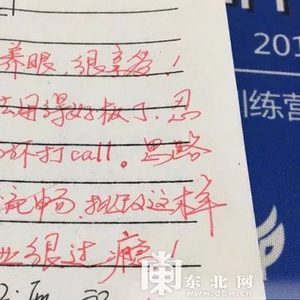 养眼、很享受！
运用得好极了，忍
不住打call。思路
流畅，批改这样
业很过瘾！
201
训练营
东北网
www.dbw.cn